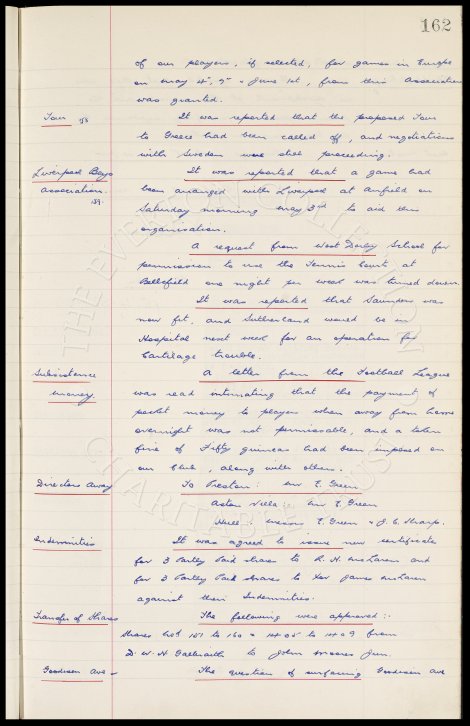 162
of our players, if selected, for games in Europe
on May 4th, 9th & June 1st, from this Association
was granted.
Tour 58 It was reported that the proposed Tour
to Greece had been called off, and negotiations
with Sweden were still proceeding.
Liverpool Boys It was reported that a game had
Association. been arranged with Liverpool at Anfield on
139. Saturday morning May 3rd to aid this
organisation.
A request from West Derby School for
permission to use the Tennis Court at
Bellefield one night per week was turned down.
It was reported that Saunders was
now fit, and Sutherland would be in
Hospital next week for an operation for
Cartilage trouble.
Subsistence A letter from the Football League
money. was read intimating that the payment of
pocket money to players when away from home
overnight was not permissable, and a token
fine of Fifty guineas had been imposed on
our Club, along with others.
Directors Away To Preston: Mr T. Green
Aston Villa: Mr T. Green
Hull: Messrs T. Green & J. C. Sharp.
Indemnities It was agreed to issue new certificates
for 3 Partly Paid shares to R. H. McLaren and
for 3 Partly Paid shares to James McLaren
against their Indemnities.
Transfer of Shares The following were approved:-
Shares Nos 151 to 160 & 1405 to 1409 from
D. W. H. Galbraith to John Moores Jun.
Goodison Ave - The question of surfacing Goodison Ave
THE EVERTON COLLECTION
CHARITABLE TRUST